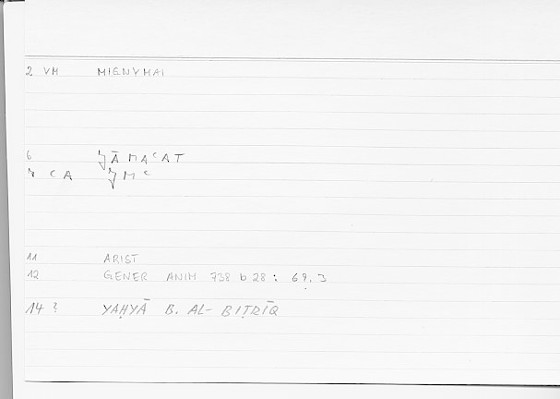 2 VM MIGNYMAI
6 ǦĀMAʿAT
7 CA ǦMʿ
11 ARIST
12 GENER ANIM 738 b 28 : 69, 3
14 3 YAḤYĀ B. AL-BIṬRĪQ